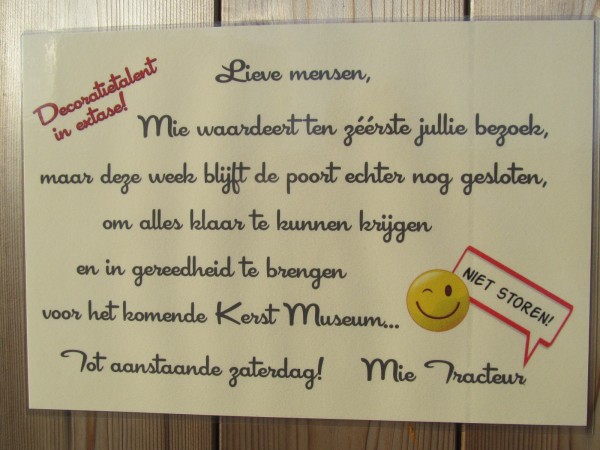 Decoratietalent
in extase!
Lieve mensen,
Mie waardeert ten zéérste jullie bezoek,
maar deze week blijft de poort echter nog gesloten,
om alles klaar te kunnen krijgen
en in gereedheid te brengen
voor het komende Kerst Museum...
NIET STOREN!
Tot aanstaande zaterdag! Mie Tracteur